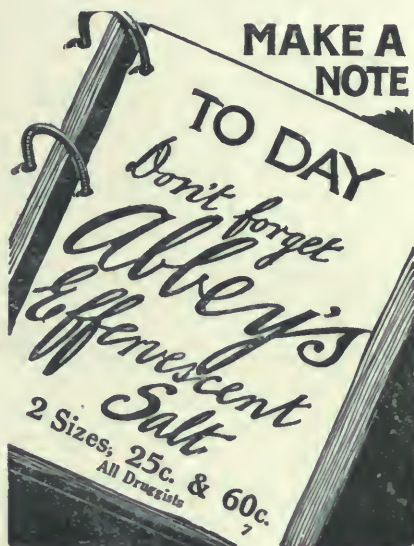 MAKE A
NOTE
TO DAY
Don't forget
Abbey's
Effervescent
Salt
2 Sizes, 25c. & 60c.
All Druggists
7